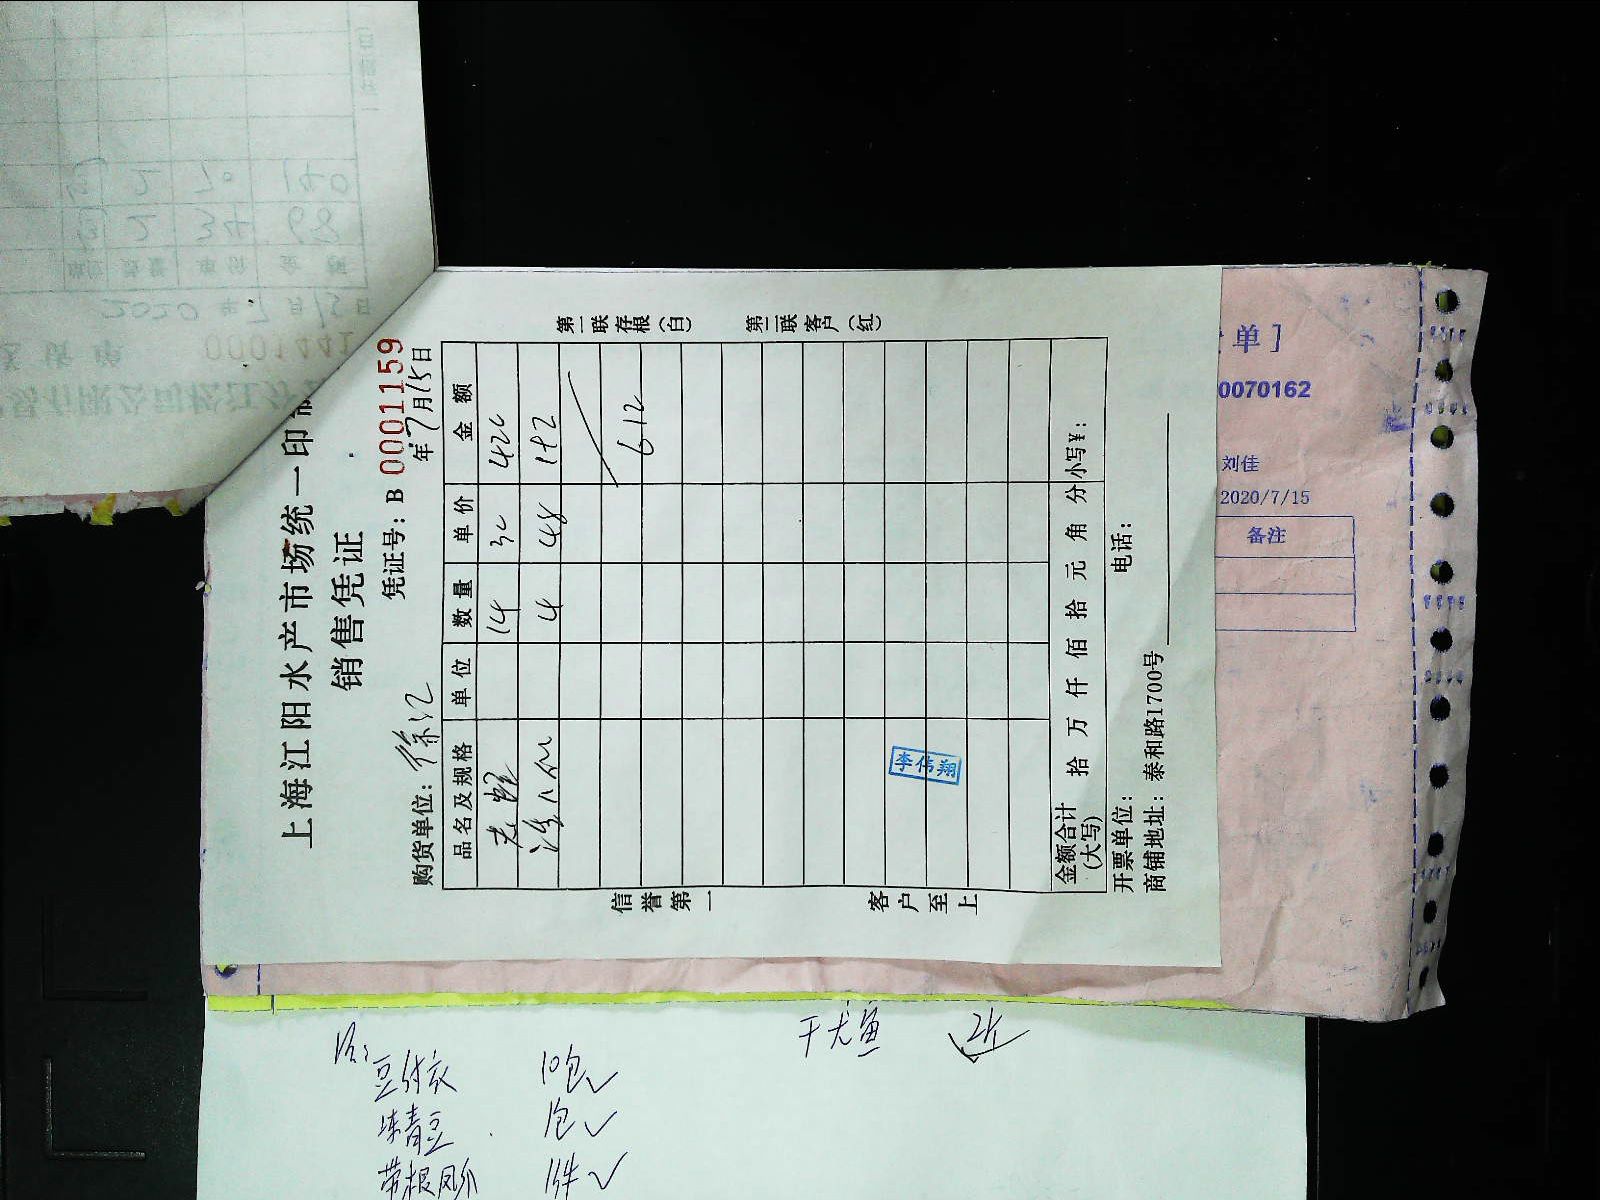 上海江阳水产市场统一印制
销售凭证
凭证号: B 0001159
购货单位: 徐汇 年7月15日
品名及规格 单位 数量 单价 金额
14 30 420
4 48 192
612
金额合计(大写) 拾 万 仟 佰 拾 元 角 分 小写¥:
开票单位: 电话:
商铺地址: 泰和路1700号
第一联存根(白) 第二联客户(红)
信誉第一 客户至上
李伟翔
单]
0070162
刘佳
2020/7/15
备注
豆付衣 10包
冻青豆 1包
带根凤爪 1件
干尤鱼 2斤
0001441
2020年7月15日
单位 数量 单价 金额
2 34 68
2 70 140